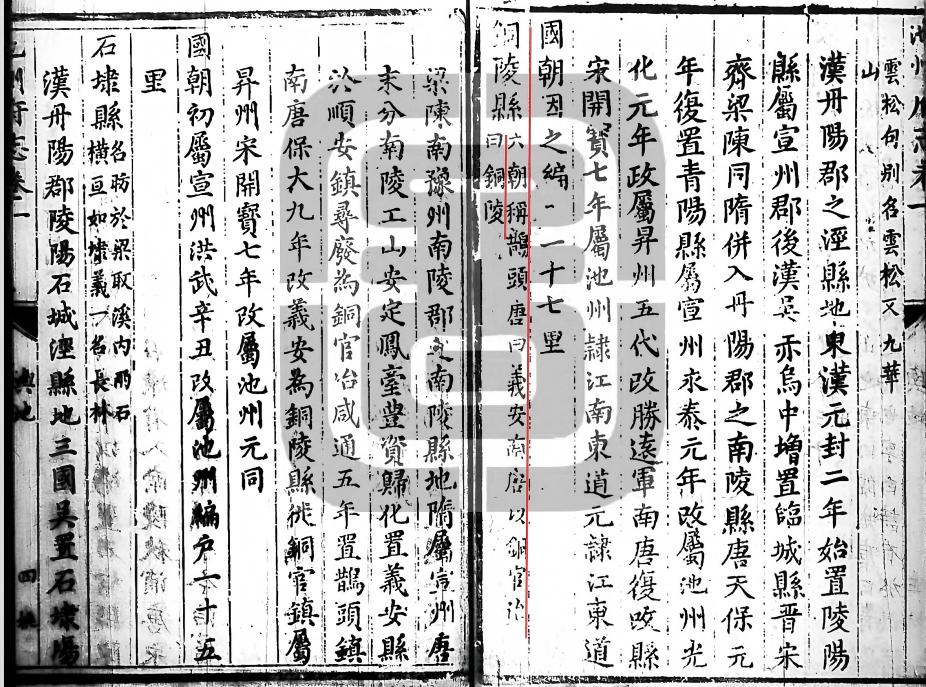 雲松句別名雲松又九華
山
漢丹陽郡之涇縣地東漢元封二年始置陵陽
縣屬宣州郡後漢吳赤烏中增置臨城縣晉宋
齊梁陳同隋併入丹陽郡之南陵縣唐天保元
年復置青陽縣屬宣州永泰元年改屬池州光
化元年政屬昇州五代改勝遠軍南唐復改縣
宋開寶七年屬池州隸江南東道元隸江東道
國朝因之編一二十七里
銅陵縣六朝稱鵲頭唐曰義安南唐以銅官冶
曰銅陵
梁陳南豫州南陵郡之南陵縣地隋屬宣州唐
末分南陵工山安定鳳臺豊資歸化置義安縣
於順安鎮尋廢為銅官冶咸通五年置鵲頭鎮
南唐保大九年改義安為銅陵縣徙銅官鎮屬
昇州宋開寶七年改屬池州元同
國朝初屬宣州洪武辛丑改屬池州編戶六十五
里
石埭縣名昉於梁取溪內兩石
橫亘如埭義一名長林
漢丹陽郡陵陽石城涇縣地三國吳置石埭陽
志卷一
輿地
四